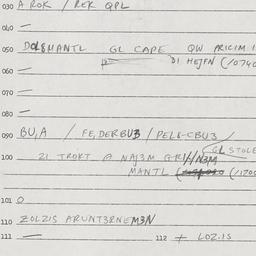 030 A ROK / REK QPL
040 —
050 DOL8MANTL GL CAPE QW PRICIM
DI HEJFN (/0740
060 —
070 —
080 —
090 BU,A / FE,DERBU3 / PEL8-CBU3 /
GL STOLE
100 21 TROKT @ NAJ3M GRI//N3M
MANTL (/1705
101 O
110 ZOLZIS ARUNT3RNEM3N
111 — 112 + LOZ.IS